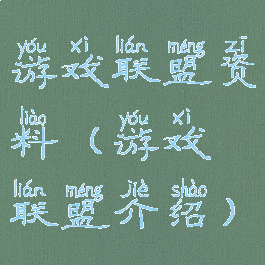 yóu xì lián méng zī
游戏联盟资
liào yóu xì
料（游戏
lián méng jiè shào
联盟介绍）